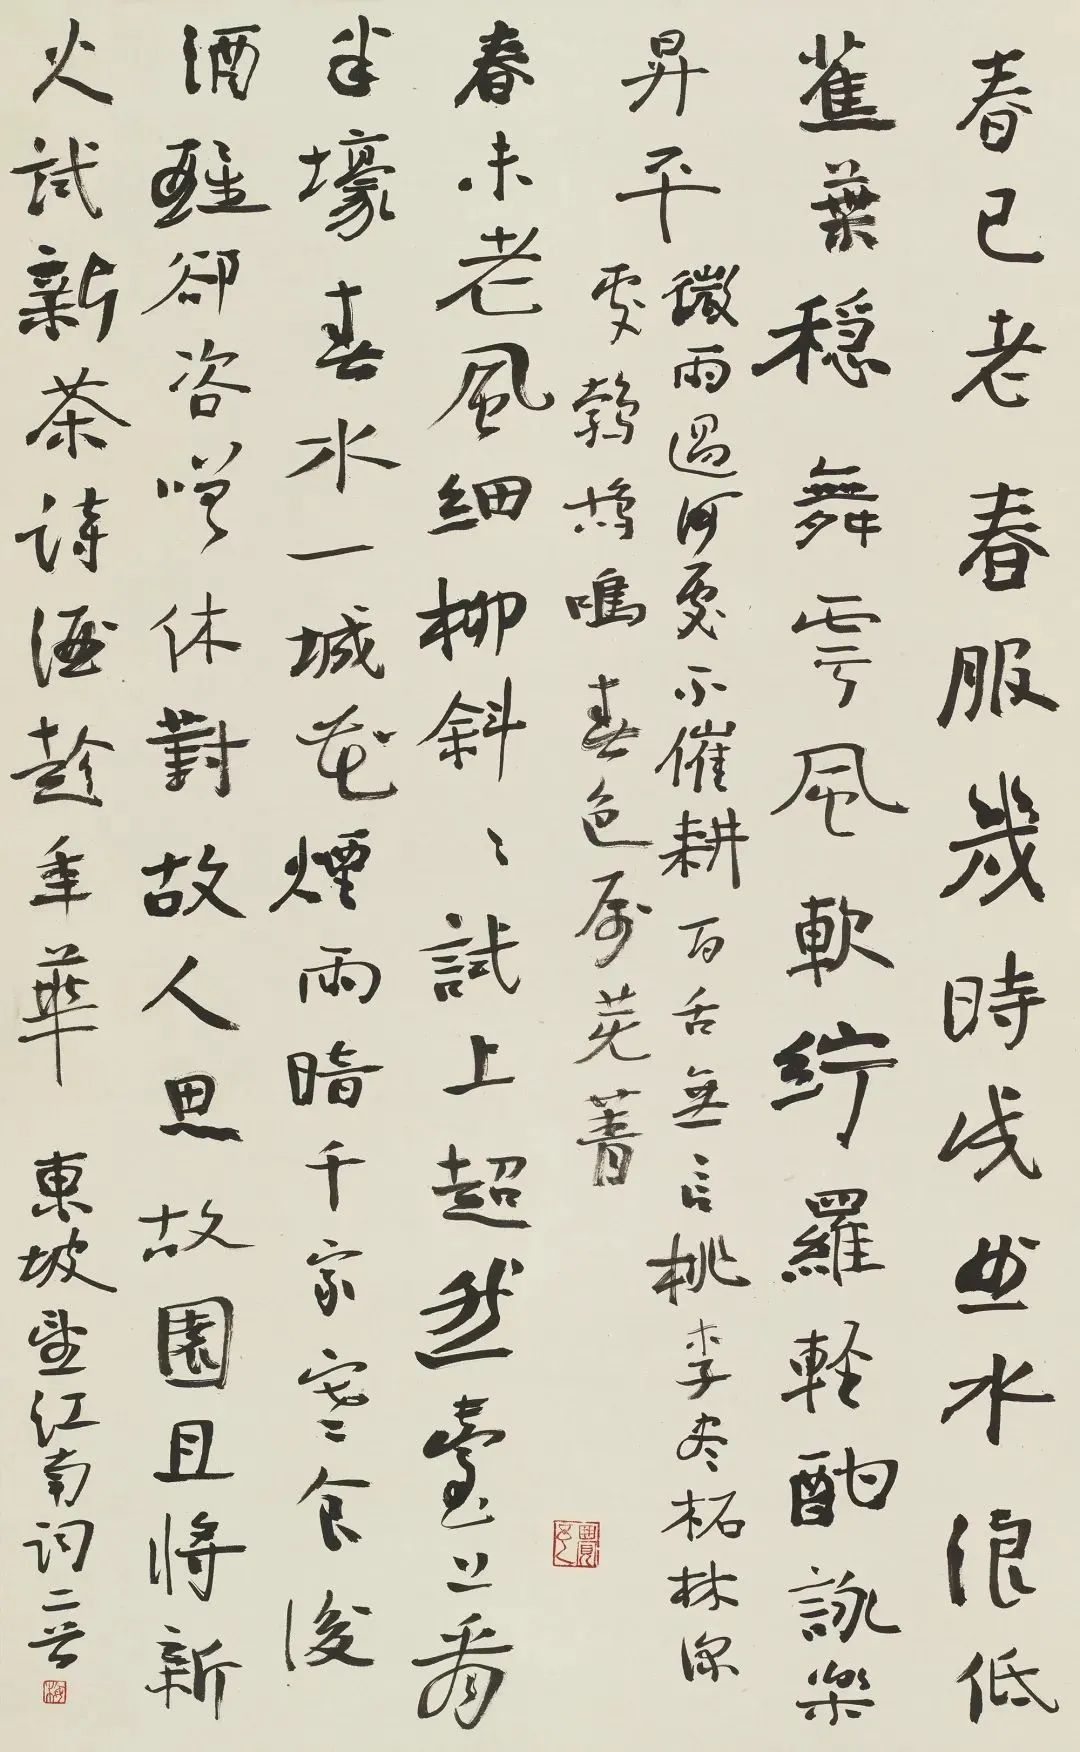 春已老春服幾時成曲水浪低
蕉葉穩舞雩風軟紵羅輕酣詠樂
昇平
微雨過何處不催耕百舌無言桃李盡柘林深
處鵓鴣鳴春色属芜菁
春未老風細柳斜〻試上超然臺上看
半壕春水一城花煙雨暗千家寒食後
酒醒卻咨嗟休對故人思故園且將新
火試新茶詩酒趁年華 東坡望江南詞二首